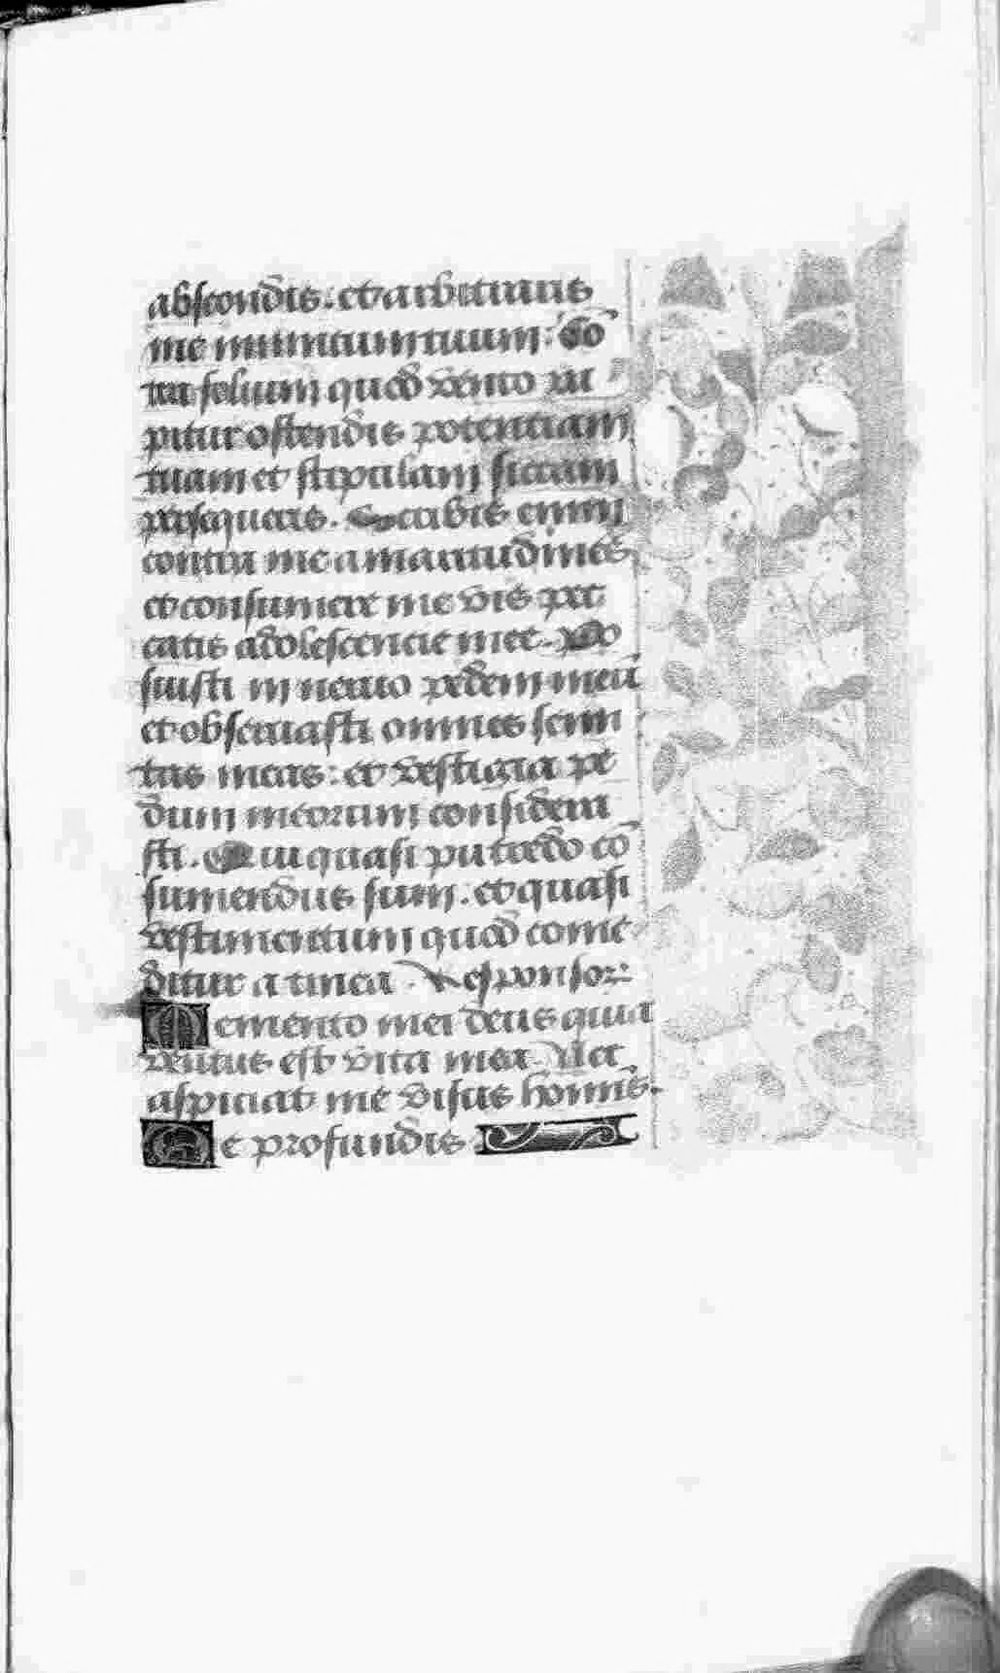 abscondis: et arbitraris
me inimicum tuum: Cō
tra folium quod vento ra
pitur ostendis potentiam
tuam et stipulam siccam
persequeris. Scribis enim
contra me amaritudines
et consumere me vis pec
catis adolescencie mee. Po
suisti in nervo pedem meū
et observasti omnes semi
tas meas: et vestigia pe
dum meorum considera
sti. Qui quasi putredo cō
sumendus sum. et quasi
vestimentum quod come
ditur a tinea. Responsor
Memento mei deus quia
ventus est vita mea. Nec
aspiciat me visus hominis.
De profundis